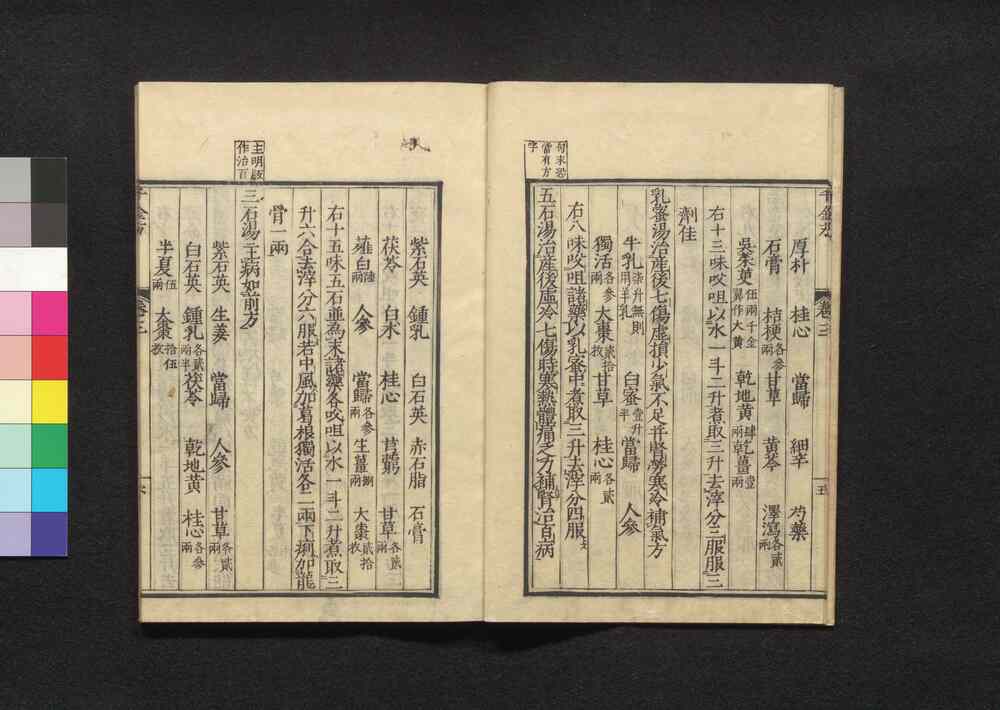 厚朴 桂心 當歸 細辛 芍藥
石膏 桔梗各參兩 甘草 黄芩 澤瀉各貳兩
吳茱萸伍兩千金翼作大黄 乾地黄肆兩 乾薑壹兩
右十三味㕮咀以水一斗二升煮取三升去滓分三服服三
劑佳
乳蜜湯治産後七傷虚損少氣不足并腎勞寒冷補氣方
牛乳柒升無則用羊乳 白蜜壹升半 當歸 人參
獨活各參兩 大棗貳拾枚 甘草 桂心各貳兩
右八味㕮咀諸藥以乳蜜中煮取三升去滓分四服
五石湯治産後虚冷七傷時寒熱體痛乏力補腎治百病
卷三
五
方求恐
當有方
字
紫石英 鍾乳 白石英 赤石脂 石膏
茯苓 白朮 桂心 芎藭 甘草各貳兩
薤白陸兩 人參 當歸各參兩 生薑捌兩 大棗貳拾枚
右十五味五石並爲末諸藥各㕮咀以水一斗二升煮取三
升六合去滓分六服若中風加葛根獨活各二兩下痢加龍
骨一兩
三石湯主病如前方
紫石英 生姜 當歸 人參 甘草各貳兩
白石英 鍾乳各貳兩半 茯苓 乾地黄 桂心各參兩
半夏伍兩 大棗拾伍枚
卷三
六
主明版
作治百